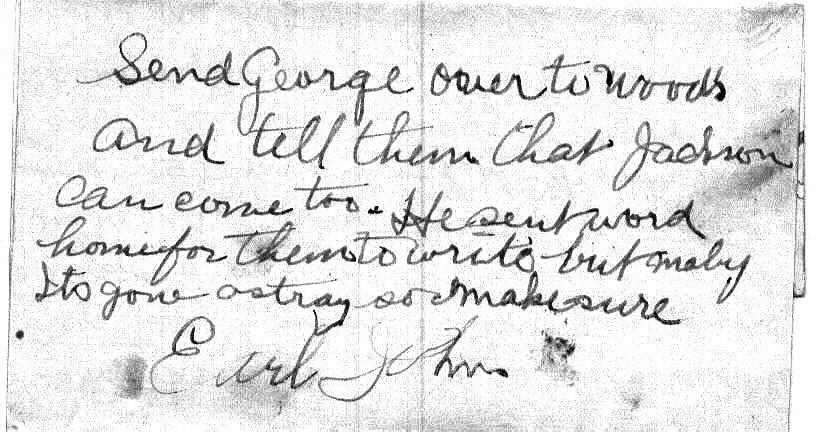 Send George over to Woods
and tell them that Jackson
can come too. He sent word
home for them to write but maby
Its gone astray so make sure
Earl John